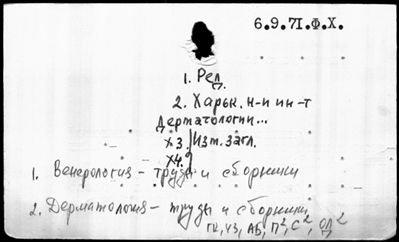 6.9.71.Ф.Х.
1. Ред.
2. Харьк. н-и ин-т
дерматологии...
х3. Изм. загл.
х4.
1. Венерология - труды и сборники
2. Дерматология - труды и сборники
ГК, УЗ, АБ, П², С², ОЛ²